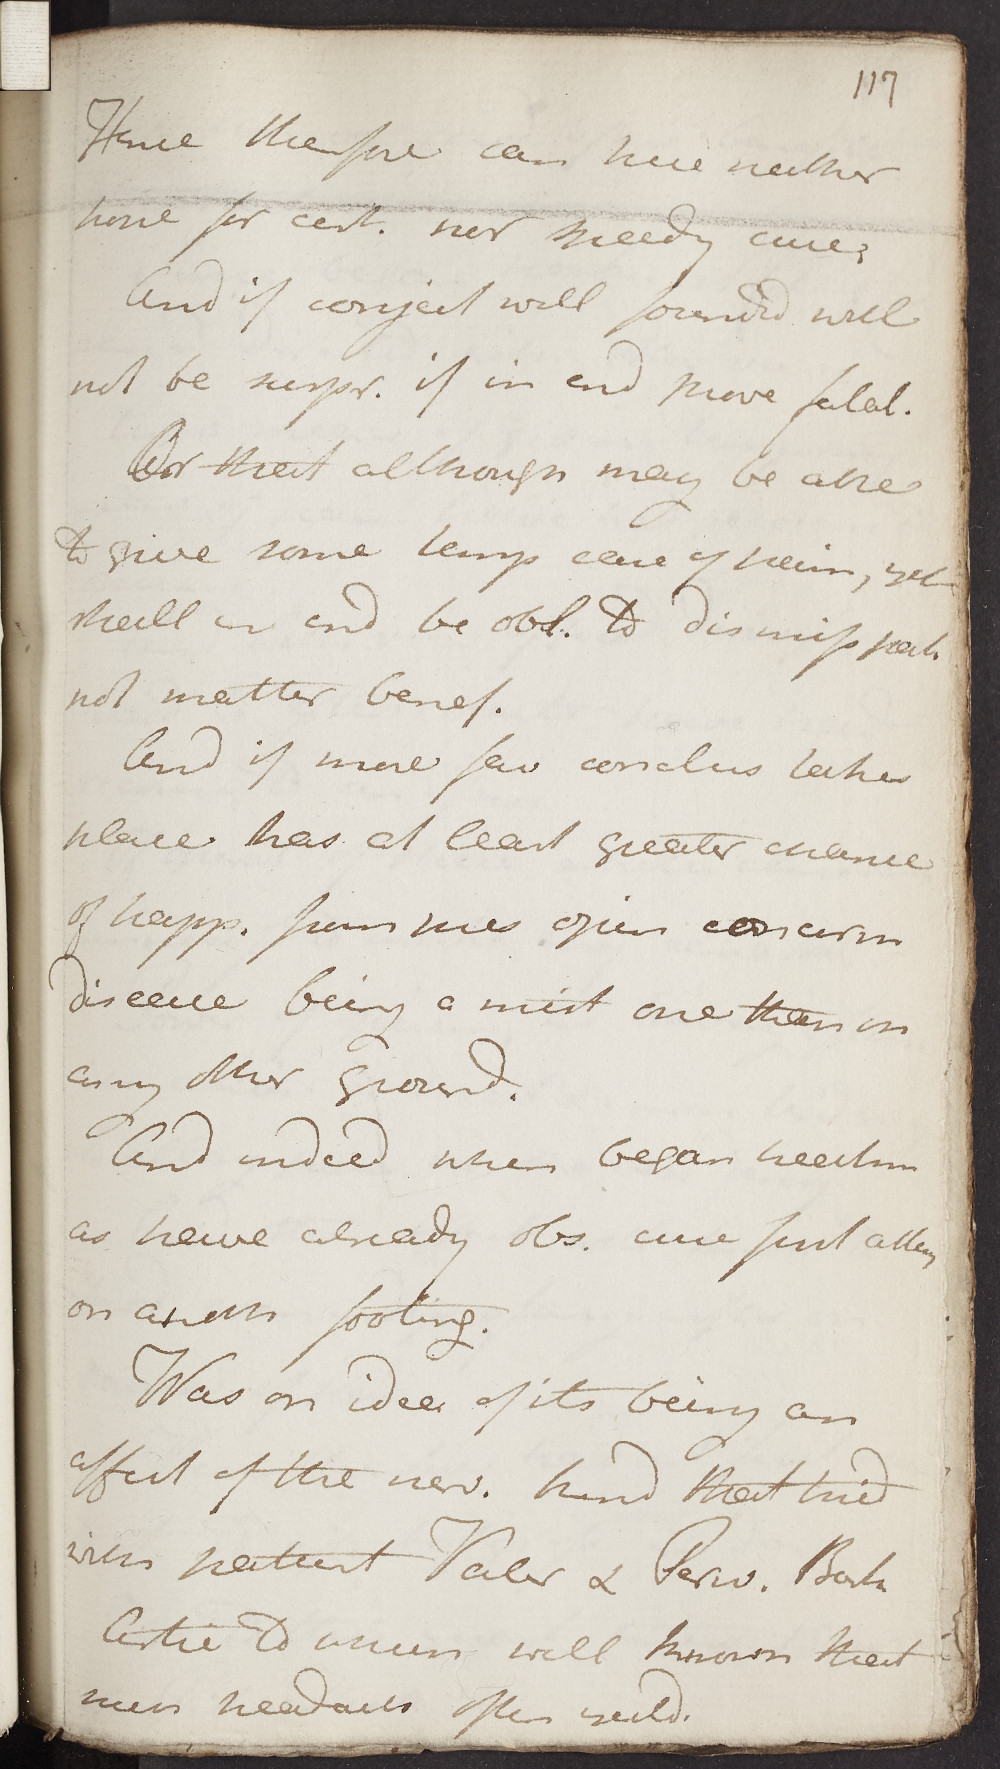 117
Hence therefore can have neither
hope for cert. nor speedy cure;
And if conject well found'd will
not be surpr. if in end prove fatal.
Or that although may be able
to give some temp ease of pain, yet
shall in end be obl. to dismiss pat.
not matter benef.
And if more fav conclus takes
place has at least greater chance
of happ. from mes opin concern
disease being a mist one than on
any other ground.
And indeed when began treatm
as have already obs. cure first attem
on anoth footing.
Was on idea of its being an
affect of the nerv. kind that tried
with patient Valer & Peruv. Bark
Artic to whom well known that
nerv headachs often yield.